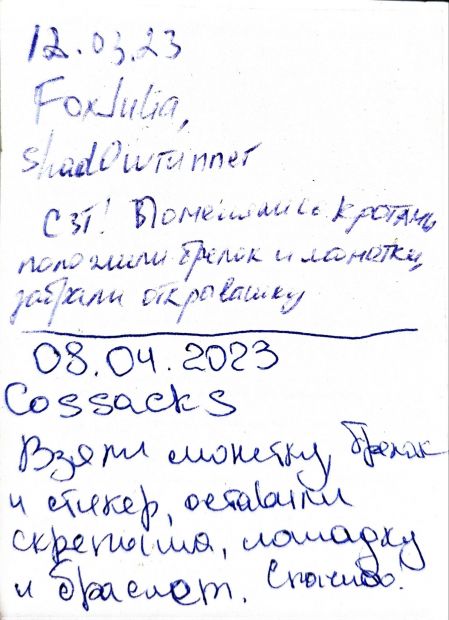 12.03.23
FoxJulia,
Shad0wrunner
СЗТ! Поменялись кротами,
положили брелок и монетку,
забрали открывашку
08.04.2023
Cossacks
Взяли монетку, брелок
и стикер, оставили
скрепыша, лошадку
и браслет. Спасибо.